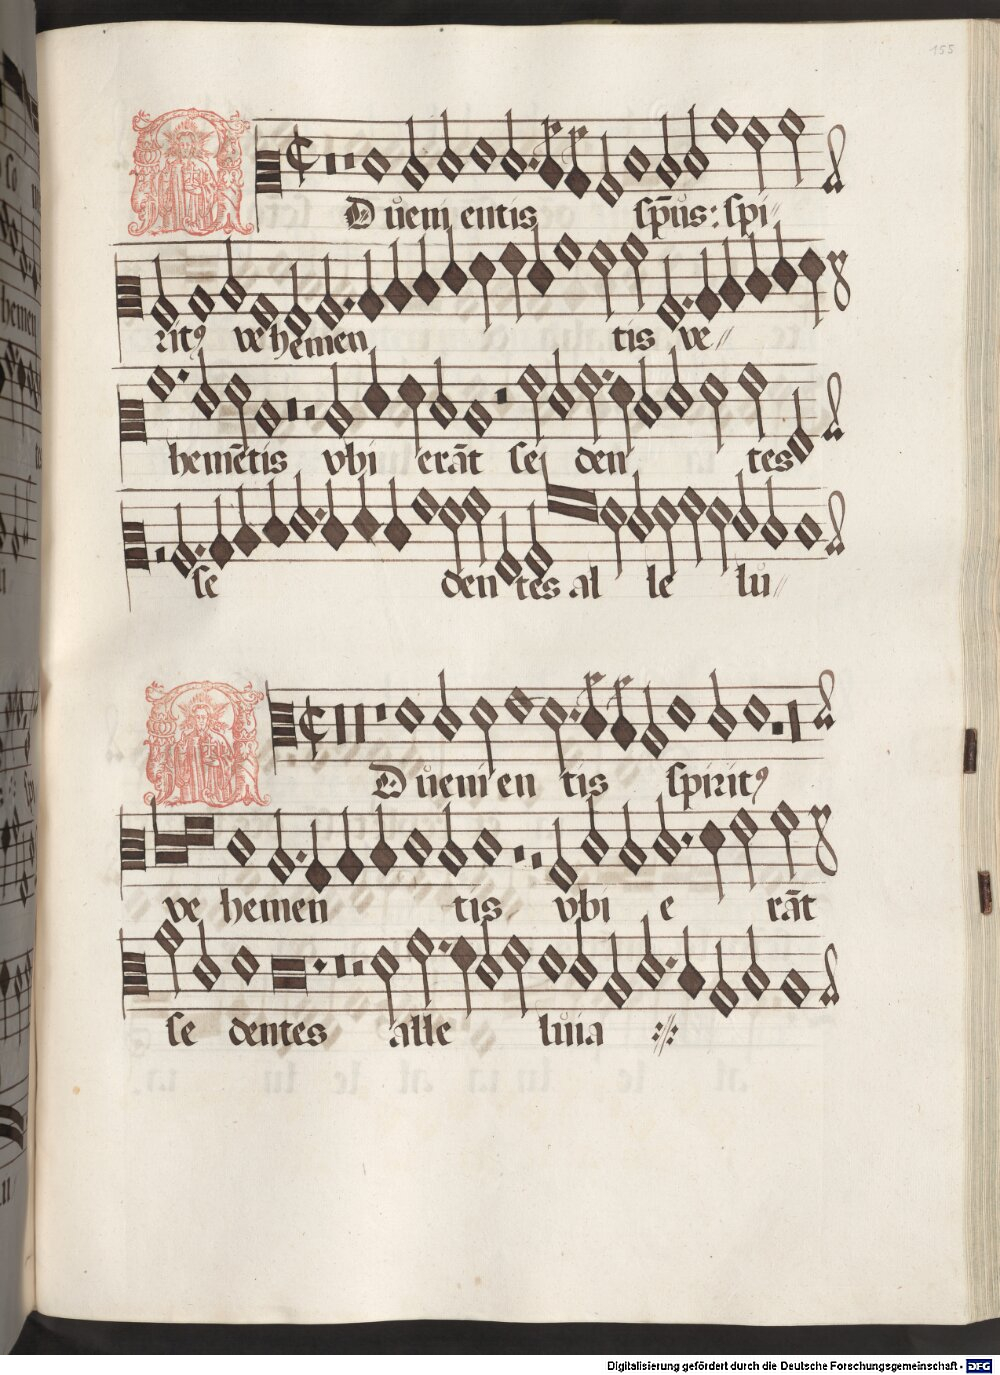 155
ADueni entis sp̄us: spi
rit9 ve hemen tis ve
hemētis vbi erāt se den tes
se den tes al le lu
ADueni en tis spirit9
ve hemen tis vbi e rāt
se dentes alle luia
Digitalisierung gefördert durch die Deutsche Forschungsgemeinschaft - DFG